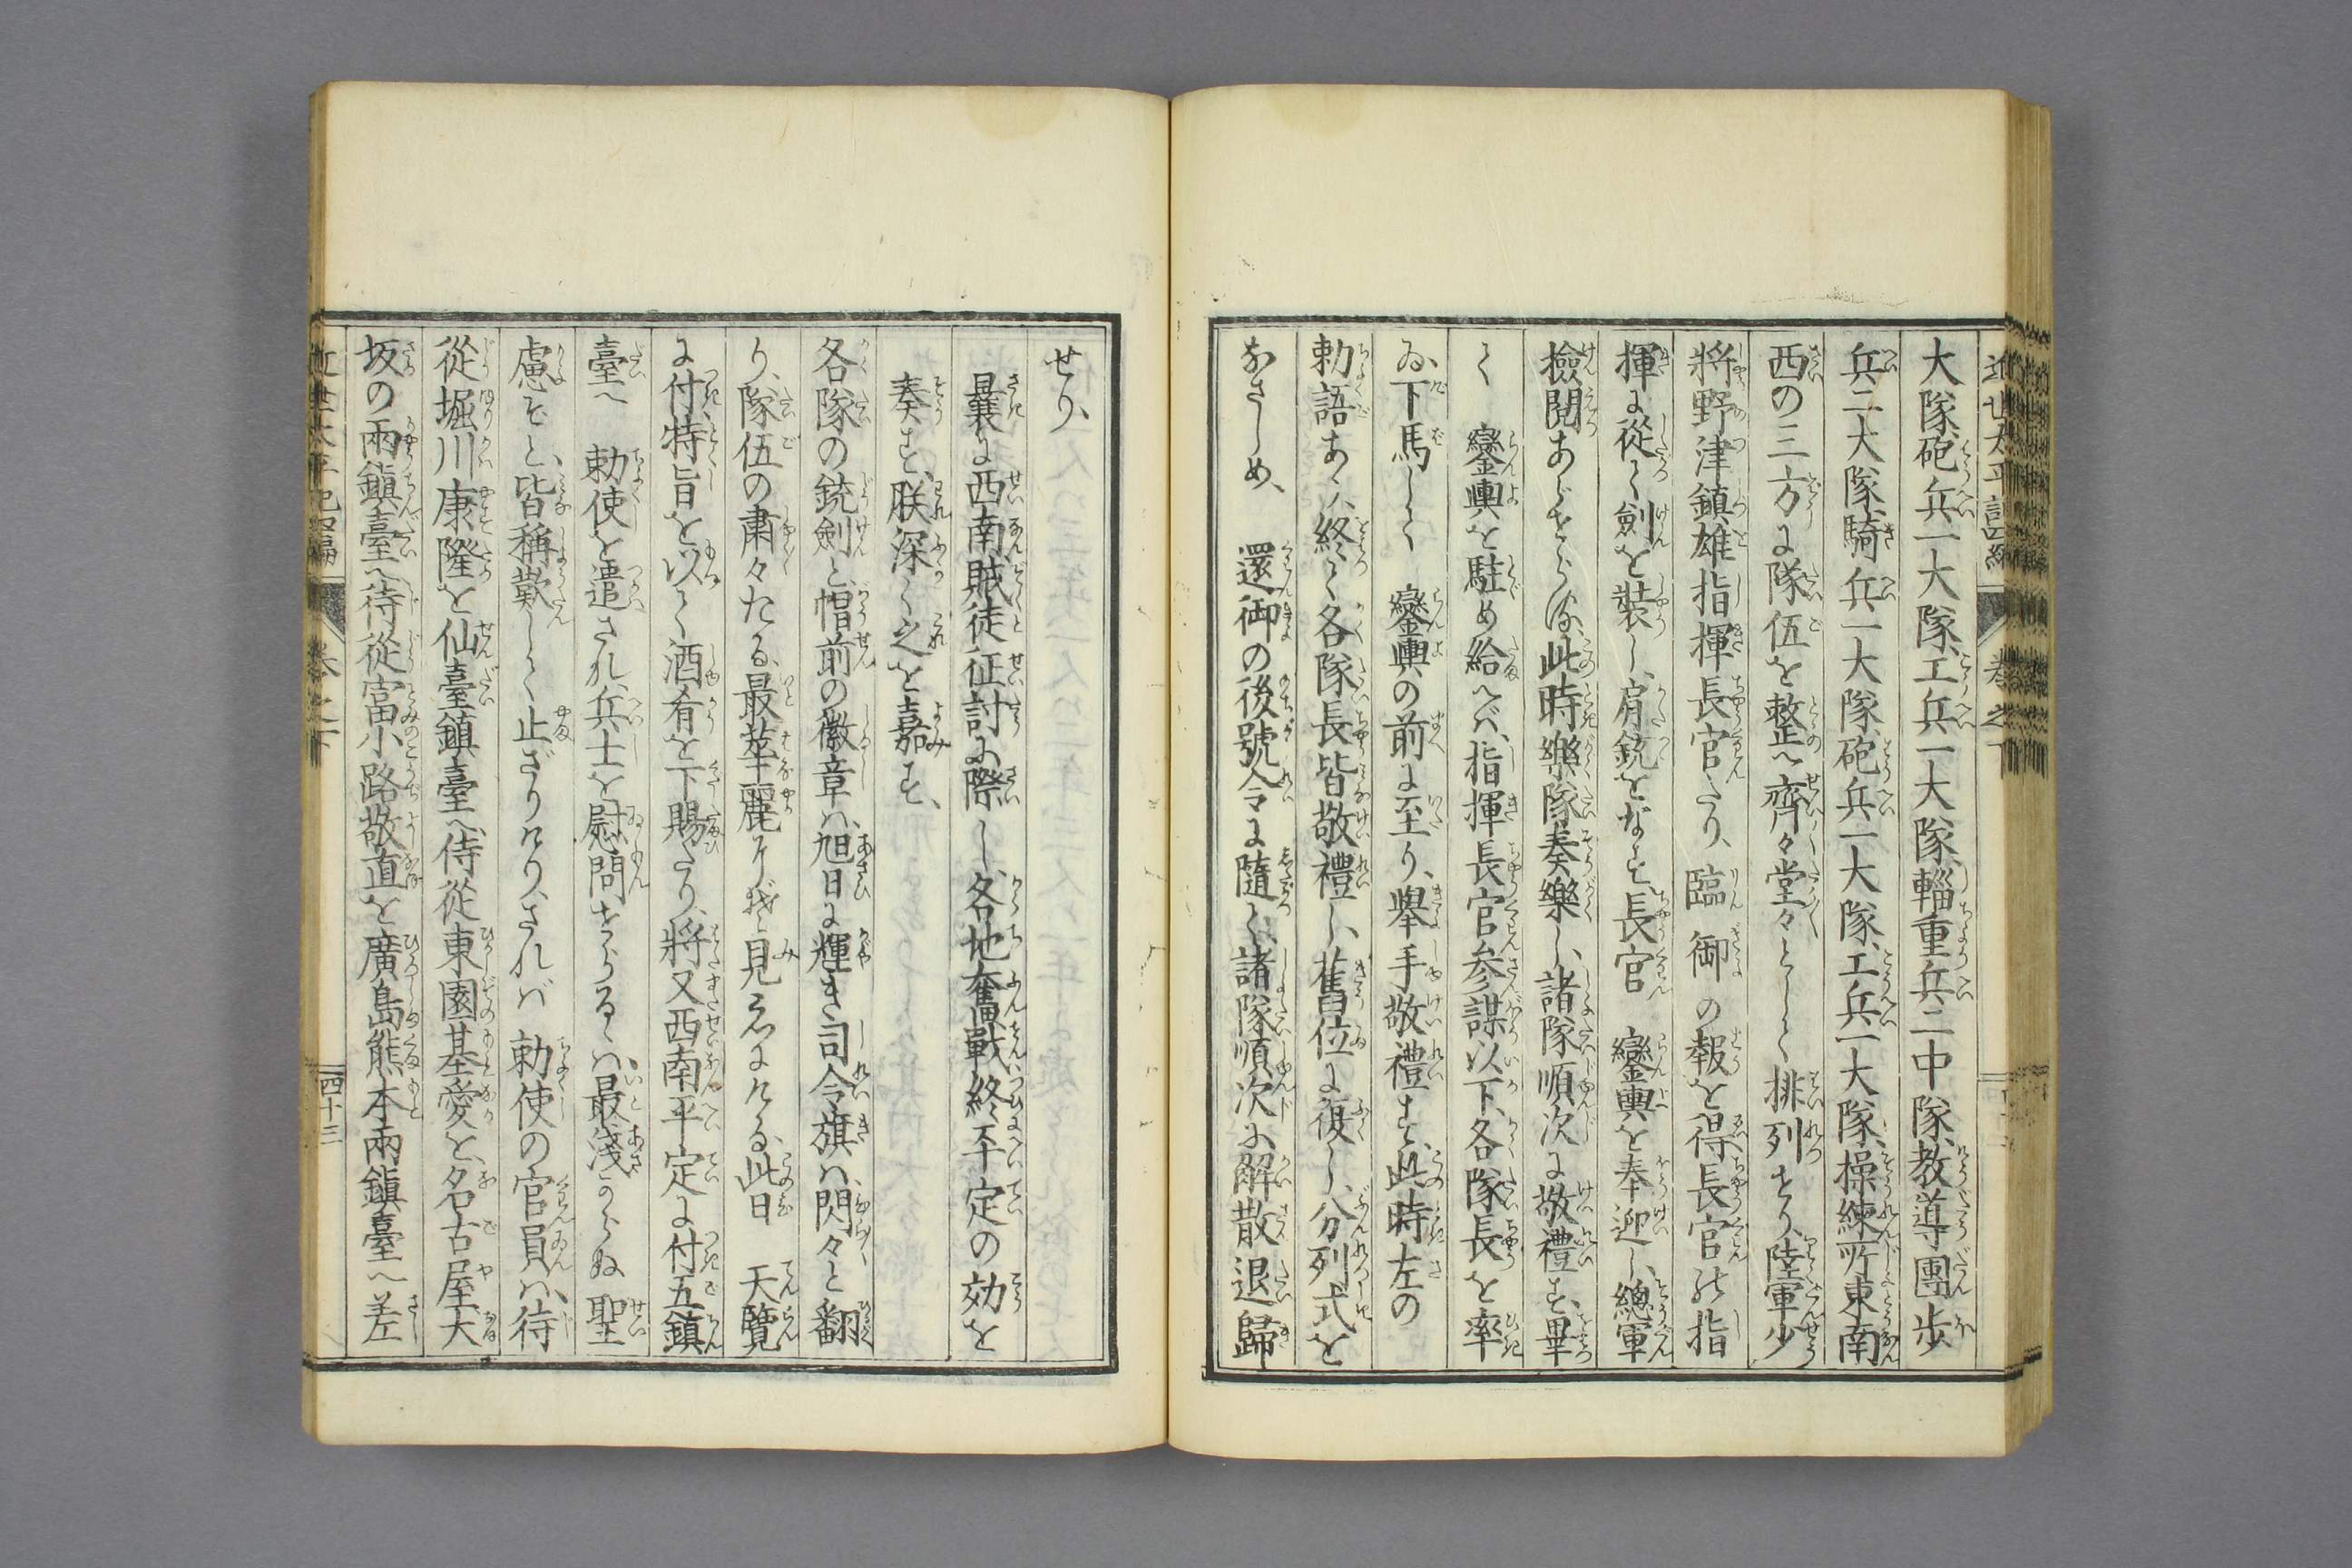 大隊、砲兵一大隊、工兵一大隊、輜重兵二中隊、教導團歩
兵二大隊、騎兵一大隊、砲兵一大隊、工兵一大隊、操練所東南
西の三方に隊伍を整へ齊々堂々として排列せり、陸軍少
將野津鎮雄指揮長官たり、臨御の報を得、長官の指
揮に從て劍を裝し、肩銃をなす、長官　鑾輿を奉迎し、總軍
撿閲あらせらる、此時樂隊奏樂し、諸隊順次に敬禮す、畢
て　鑾輿を駐め給へバ、指揮長官参謀以下、各隊長を率
ゐ、下馬して　鑾輿の前に至り、舉手敬禮す、此時左の
勅語あり、終て各隊長皆敬禮し、舊位に復し、分列式を
なさしめ、　還御の後號令に隨て、諸隊順次に解散退歸
せり、
曩に西南賊徒征討に際し、各地奮戰、終平定の効を
奏す、朕深く之を嘉みす、
各隊の銃劍と、帽前の徽章ハ、旭日に輝き、司令旗ハ、閃々と翻
り、隊伍の肅々たる、最華麗にぞ見えにける、此日　天覽
に付、特旨を以て酒肴を下賜たり、將又西南平定に付、五鎮
臺へ　勅使を遣され、兵士を慰問せらるゝハ、最淺からぬ　聖
慮ぞと、皆稱歎して止ざりけり、されバ　勅使の官員ハ、侍
從堀川康隆を仙臺鎮臺へ、侍從東園基愛を、名古屋大
坂の兩鎮臺へ、侍從富小路敬直を、廣島熊本兩鎮臺へ差
近世太平記四編　巻之下　四十三